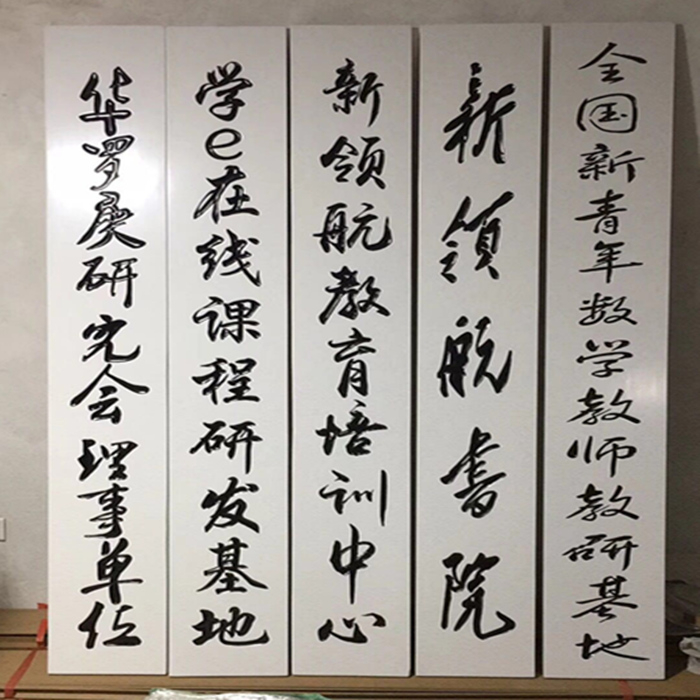 华罗庚研究会理事单位
学e在线课程研发基地
新领航教育培训中心
新领航书院
全国新青年数学教师教研基地